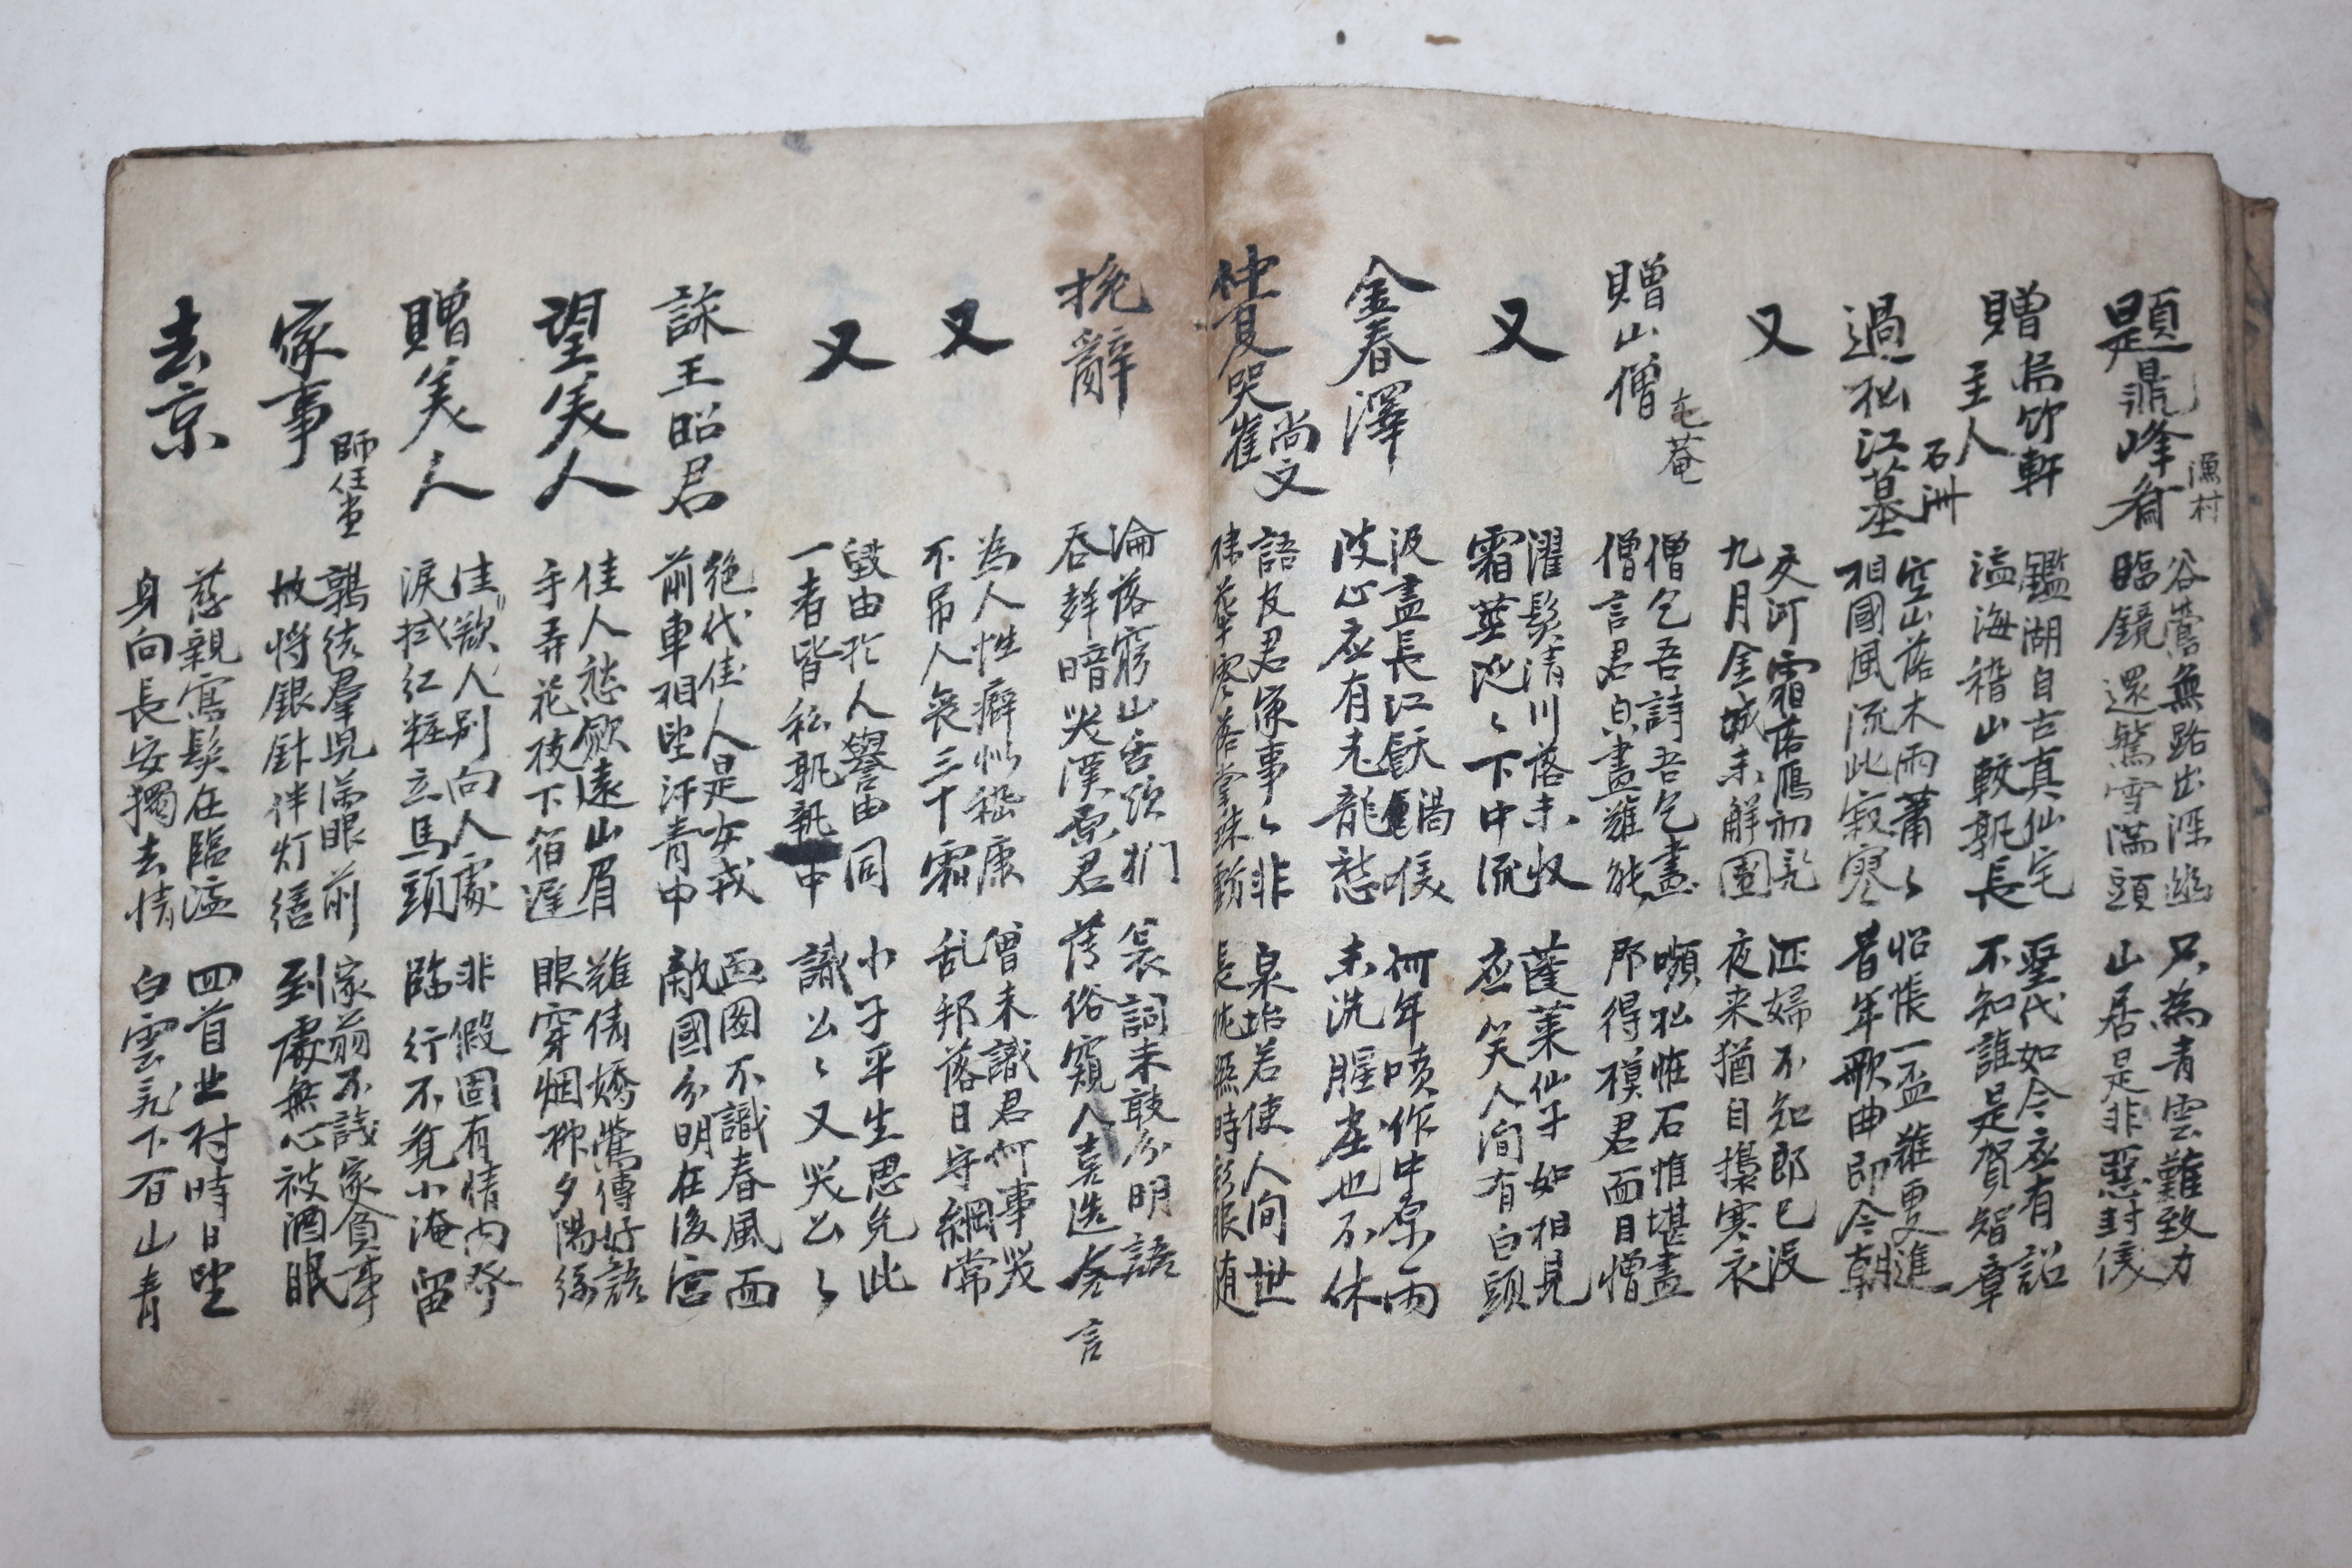 題鼎峰齋 漁村
谷鶯無路出深幽 只為青雲難致力
臨鏡還驚雪滿頭 山居是非惡封侯
贈烏竹軒主人
鑑湖自古真仙宅 聖代如今应有詔
溢海稽山較孰長 不知誰是賀智章
過松江墓 石洲
空山落木雨蕭〻 怊悵一盃難更進
相國風流此寂寥 昔年歌曲即今朝
又
交河霜落鴈初飛 征婦不知郎已沒
九月金城未解圍 夜来猶自搗寒衣
贈山僧 屯菴
僧乞吾詩吾乞畫 嚬松恠石惟堪畫
僧言君自畫難能 那得摸君面目憎
又
濯髮清川落未収 蓬萊仙子如相見
霜莖泛〻下中流 应笑人間有白頭
金春澤
汲盡長江猒渴喉 何年噴作中原雨
波心应有老龍愁 未洗腥塵也不休
仲夏哭崔尚文
語友君家事〻非 泉坮若使人间世
棣萼零落掌珠 長 膝時 眼随
挽辭
淪落窮山舌欲捫 哀詞未敢分明語
吞聲暗哭漢원君 薄俗窺人喜造言
又
為人性癖似嵇康 僧未識君何事哭
不吊人喪三十霜 乱邦落日守綱常
又
毀由於人譽由同 小子平生恩免此
一者皆私孰執中 識公〻又哭公〻
詠王昭君
絶代佳人是女戎 画圖不識春風面
前車相望汗青中 敵國分明在後宮
望美人
佳人愁歛遠山眉 難倩嬌鶯傳好語
手弄花枝下箔遲 眼穿烟柳夕陽絲
贈美人
佳歎人別向人處 非假固有情内發
淚拭紅粧立馬頭 臨行不覓小淹留
家事 師任堂
鶉衣羣兒滿眼前 家翁不識家貧事
故将銀針伴灯 到處無心被酒眠
去京
慈親寫髮在臨瀛 四首北村時日望
身向長安獨去情 白雲飛下百山青